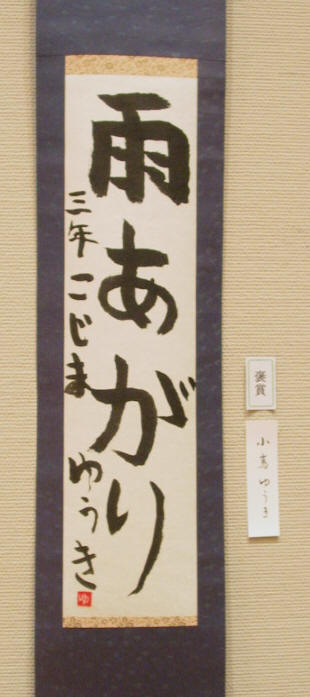 雨あがり
三年 こじま ゆうき
ゆ
褒賞
小嶌 ゆうき